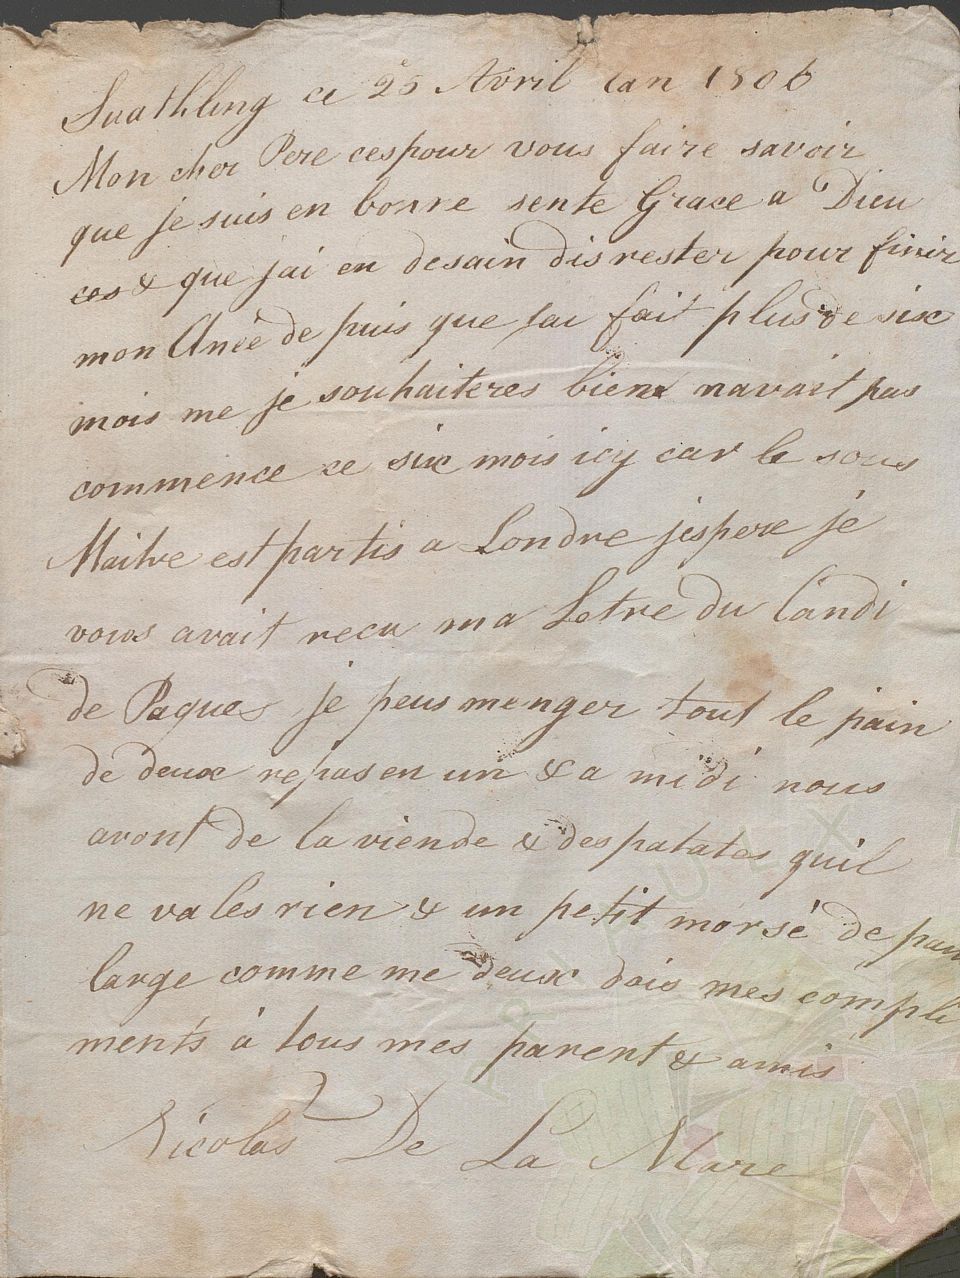 Suathling ce 25 Avril lan 1806
Mon cher Pere cespour vous faire savoir
que je suis en bonne sente Grace a Dieu
ces & que jai en desain dis rester pour finir
mon Aneé de puis que jai fait plus de six
mois me je souhaiteres bien navait pas
commence ce six mois icy car le sous
Maitre est partis a Londre jespere je
vous avait recu ma Letre du landi
de Paques je peus menger tout le pain
de deux repas en un & a midi nous
avont de la viende & des patates quil
ne vales rien & un petit morsé de pain
large comme me deux dois mes compli
ments à tous mes parent & amis
Nicolas De La Mare
PRIAULX